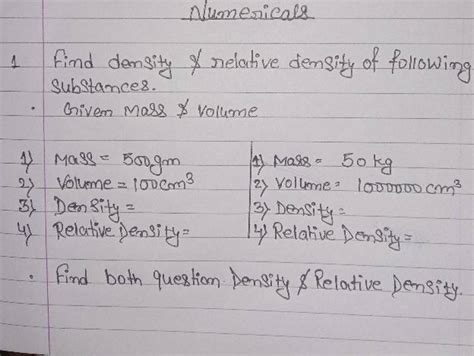 Numericals
1 Find density & relative density of following
substances.
. Given Mass & Volume
1) Mass = 500gm
2) Volume = 100cm³
3) Density =
4) Relative Density =
1) Mass = 50 kg
2) Volume = 1000000 cm³
3) Density =
4) Relative Density =
. Find both question Density & Relative Density.